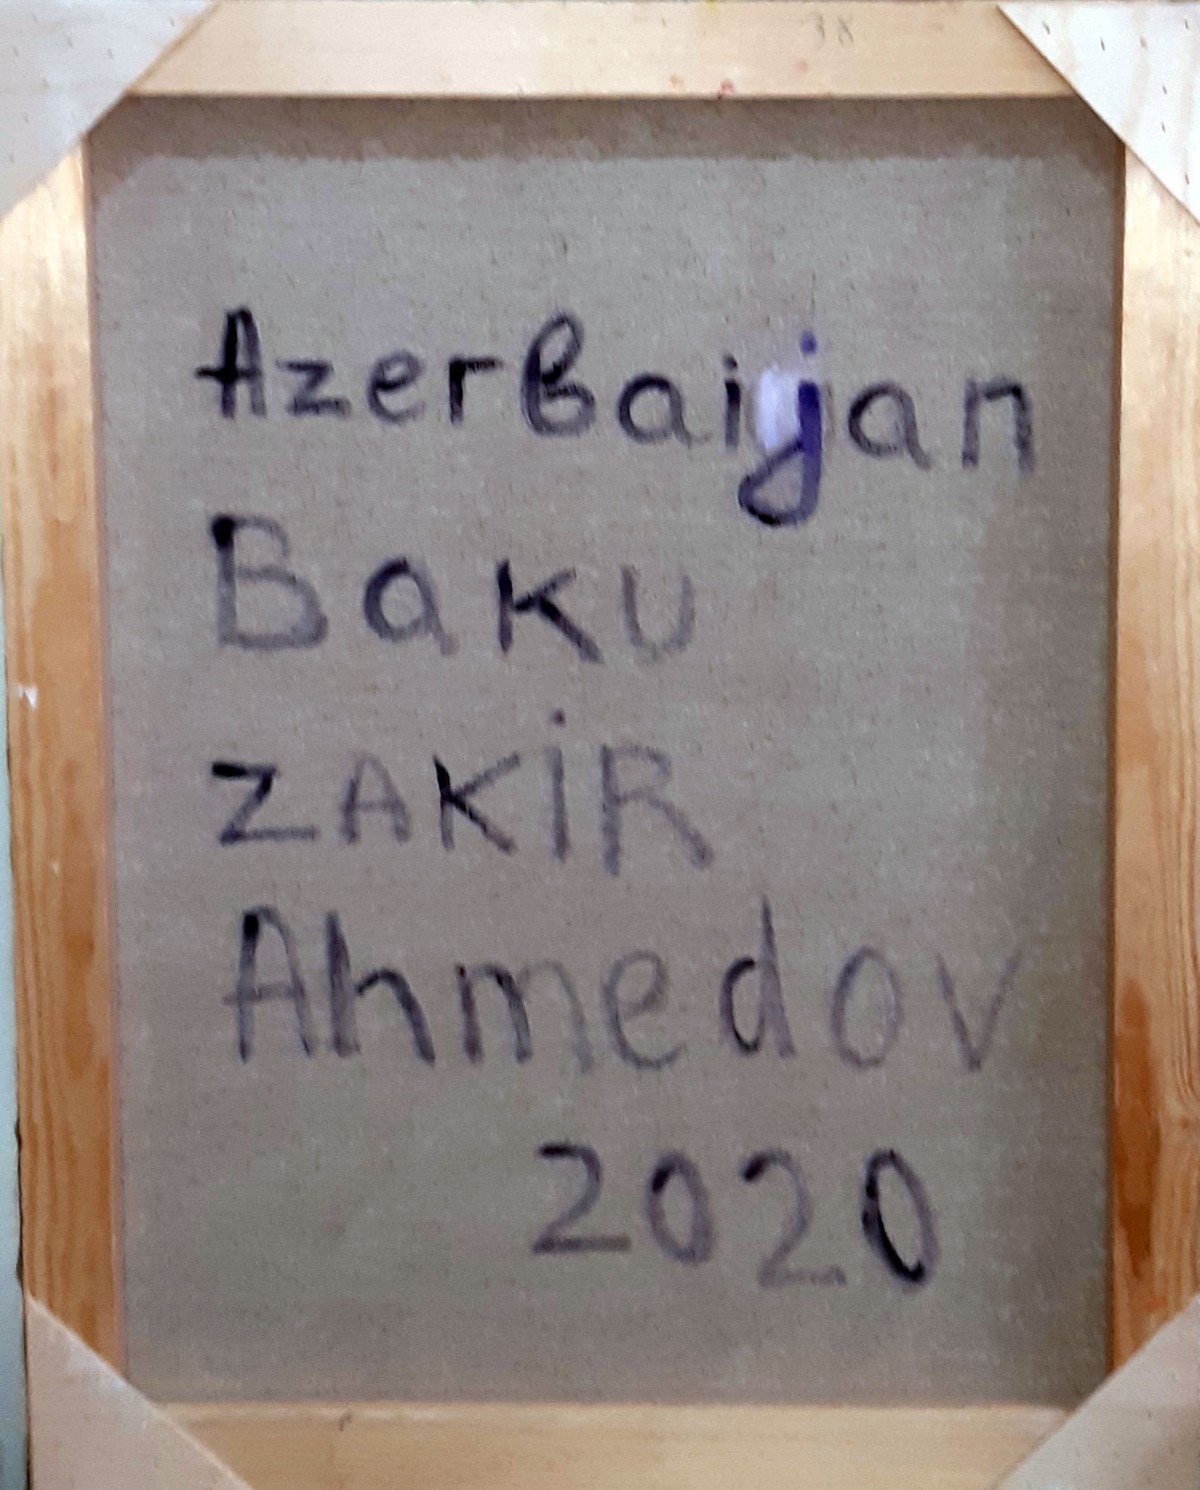 38
AzerBaijan
Baku
ZAKİR
Ahmedov
2020